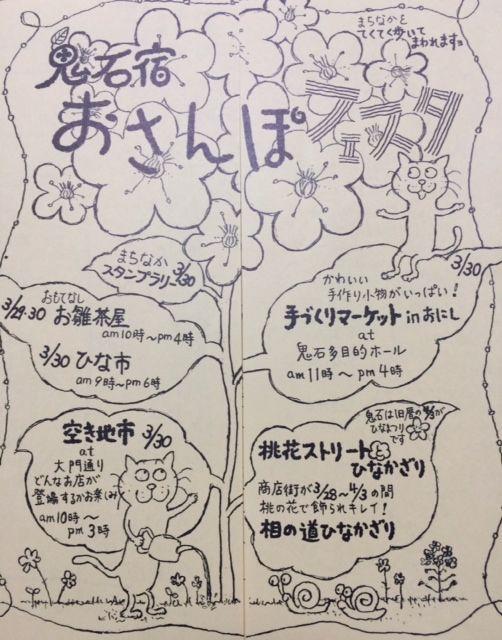 まちなかを
てくてく歩いて
まわれますョ
鬼石宿
おさんぽ
フェスタ
まちなか
スタンプラリー 3/30
おもてなし
3/29.30 お雛茶屋
am10時〜pm4時
3/30 ひな市
am9時〜pm6時
3/30
かわいい
手作り小物がいっぱい!
手づくりマーケット inおにし
at
鬼石多目的ホール
am11時〜pm4時
空き地市 3/30
at
大門通り
どんなお店が
登場するかお楽しみ
am10時〜
pm3時
鬼石は旧暦の4/3が
ひなまつり
です
桃花ストリート
ひなかざり
商店街が3/28〜4/3の間
桃の花で飾られキレイ!
相の道ひなかざり